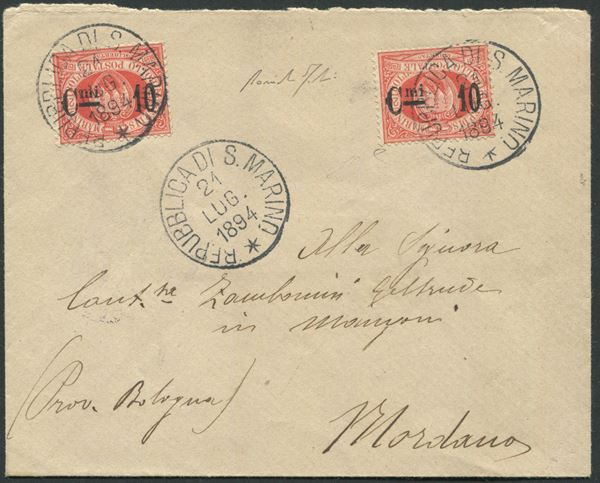 REPUBBLICA DI S. MARINO
21
LUG.
1894
Cmi 10
REPUBBLICA DI S. MARINO
21
LUG.
1894
Cmi 10
REPUBBLICA DI S. MARINO
21
LUG.
1894
Alla Signora
Cont.ssa Zambonini Geltrude
in Manzoni
(Prov. Bologna)
Mordano